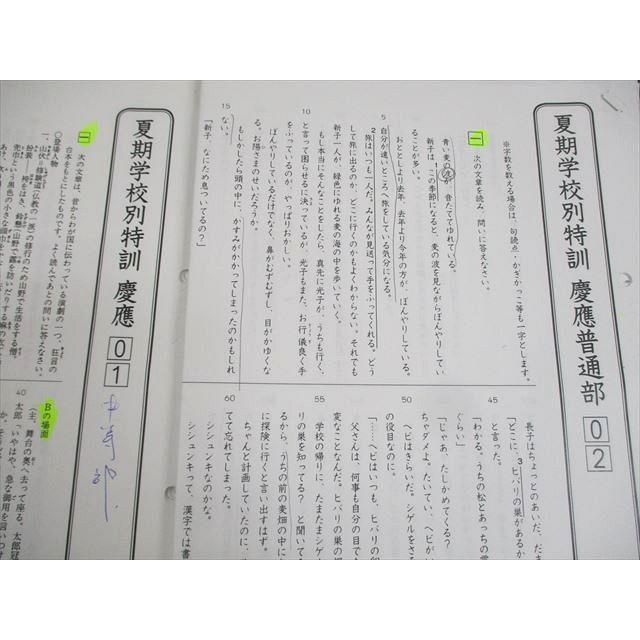 夏期学校別特訓 慶應普通部 02
※字数を数える場合は、句読点・かぎかっこ等も一字とします。
一 次の文章を読み、問いに答えなさい。
青い麦の波が、音たててゆれている。
新子は、1この季節になると、麦の波を見ながらぼんやりしてい
ることが多い。
おととしより去年、去年より今年の方が、ぼんやりしている。
5 自分が遠いところへ旅をしている気分になる。
2旅はいつも一人だ。みんなが見送って手をふってくれる。どう
して旅に出るのか、どこに行くのかもよくわからない。それでも
新子一人が、緑色にゆれる麦の海の中を歩いていく。
もし本当にそんなことをしたら、真先に光子が、うちも行く、
10 と言って困らせるに決っているが、光子もまた、お行儀良く手
をふっているのが、やっぱりおかしい。
ぼんやりしているだけでなく、鼻がむずむずし、目がかゆくな
る。お陽さまのせいだろうか。
もしかしたら頭の中に、かすみがかかってしまったのかもしれ
15 ない。
「新子、なにため息ついてるの？」
長子はちょっとのあいだ、
「どこに、3ヒバリの巣があるか
と言った。
45 「わかる。うちの松とあっちの
ぐらい」
「じゃあ、たしかめてくる？
ちゃダメよ。たいてい、ヘビが
ヘビはきらいだ。シゲルをさ
50 の役目なのに。
「……ヘビはいつも、ヒバリの
父さんは、何事も自分の目で
変なことなんだ。ヒバリの巣の
学校の帰りに、たまたまシゲ
55 リの巣を知ってる？ と聞いて
るから、うちの前の麦畑の中に
に探検に行くと言い出すはず。
ちゃんと計画していたのに、
てて忘れてしまった。
60 シシュンキなのかな。
シシュンキって、漢字では書
夏期学校別特訓 慶應 01 中等部
一 次の文章は、昔からわが国に伝わっている演劇の一つ、狂言の
台本をもとにしたものです。よく読んであとの問いに答えなさい。
○登場人物
一、山伏＝修験道（仏教の一派）の修行のため山野で生活をする僧。
40
Bの場面
（主、舞台の奥へ去って座る。太郎冠
太郎「いやはや、急な御用を言いつけ